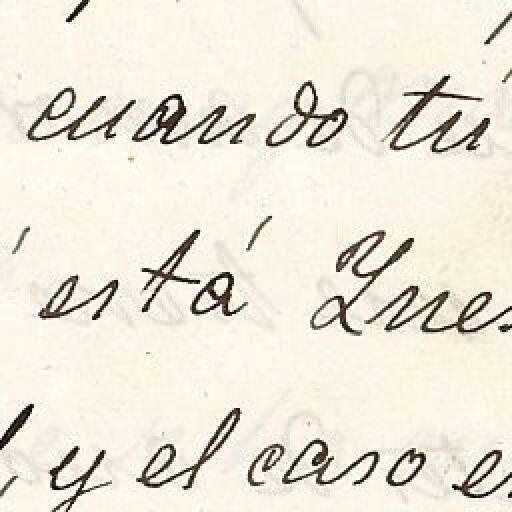 cuando tú
está Ines
, y el caso es